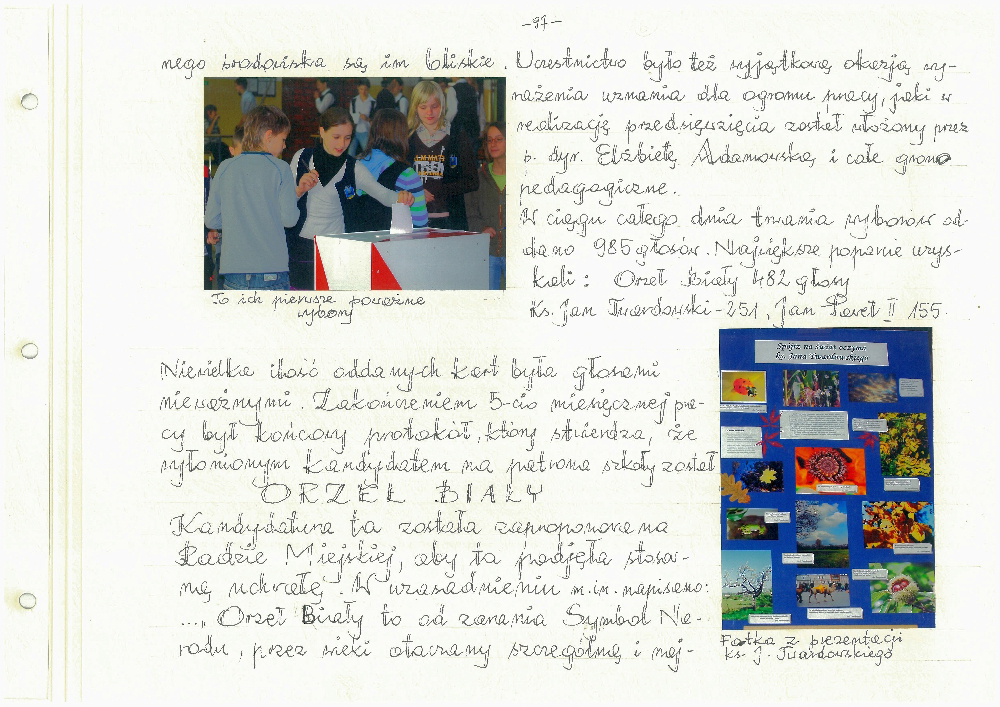 -97-
nego środowiska są im bliskie. Uczestnictwo było też wyjątkową okazją wy-
rażenia uznania dla ogromu pracy, jaki w
realizację przedsięwzięcia został włożony przez
p. dyr. Elżbietę Adamowską i całe grono
pedagogiczne.
W ciągu całego dnia trwania wyborów od-
dano 985 głosów. Największe poparcie uzys-
kali: Orzeł Biały 482 głosy
Ks. Jan Twardowski - 251, Jan Paweł II 155.
To ich pierwsze poważne
wybory
Niewielka ilość oddanych kart była głosami
nieważnymi. Zakończeniem 5-cio miesięcznej pra-
cy był końcowy protokół, który stwierdza, że
wyłonionym kandydatem na patrona szkoły został
ORZEŁ BIAŁY
Kandydatura ta została zaproponowana
Radzie Miejskiej, aby ta podjęła stosow-
ną uchwałę. W uzasadnieniu m.in. napisano:
...„ Orzeł Biały to od zarania Symbol Na-
rodu, przez wieki otaczany szczególną i naj-
Spójrz na świat oczyma
ks. Jana Twardowskiego
Fotka z prezentacji
ks. J. Twardowskiego